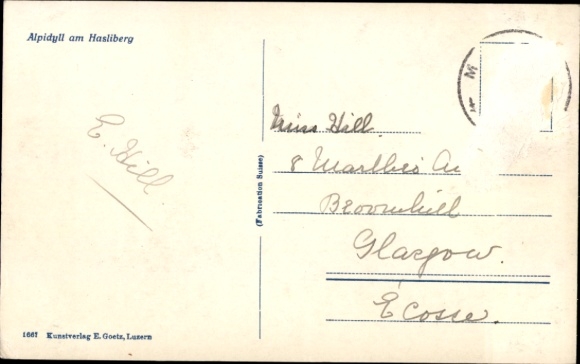 Alpidyll am Hasliberg
M
E. Hill
Miss Hill.
8
Broomhill
Glasgow.
Écosse.
(Fabrication Suisse)
1667 Kunstverlag E. Goetz, Luzern